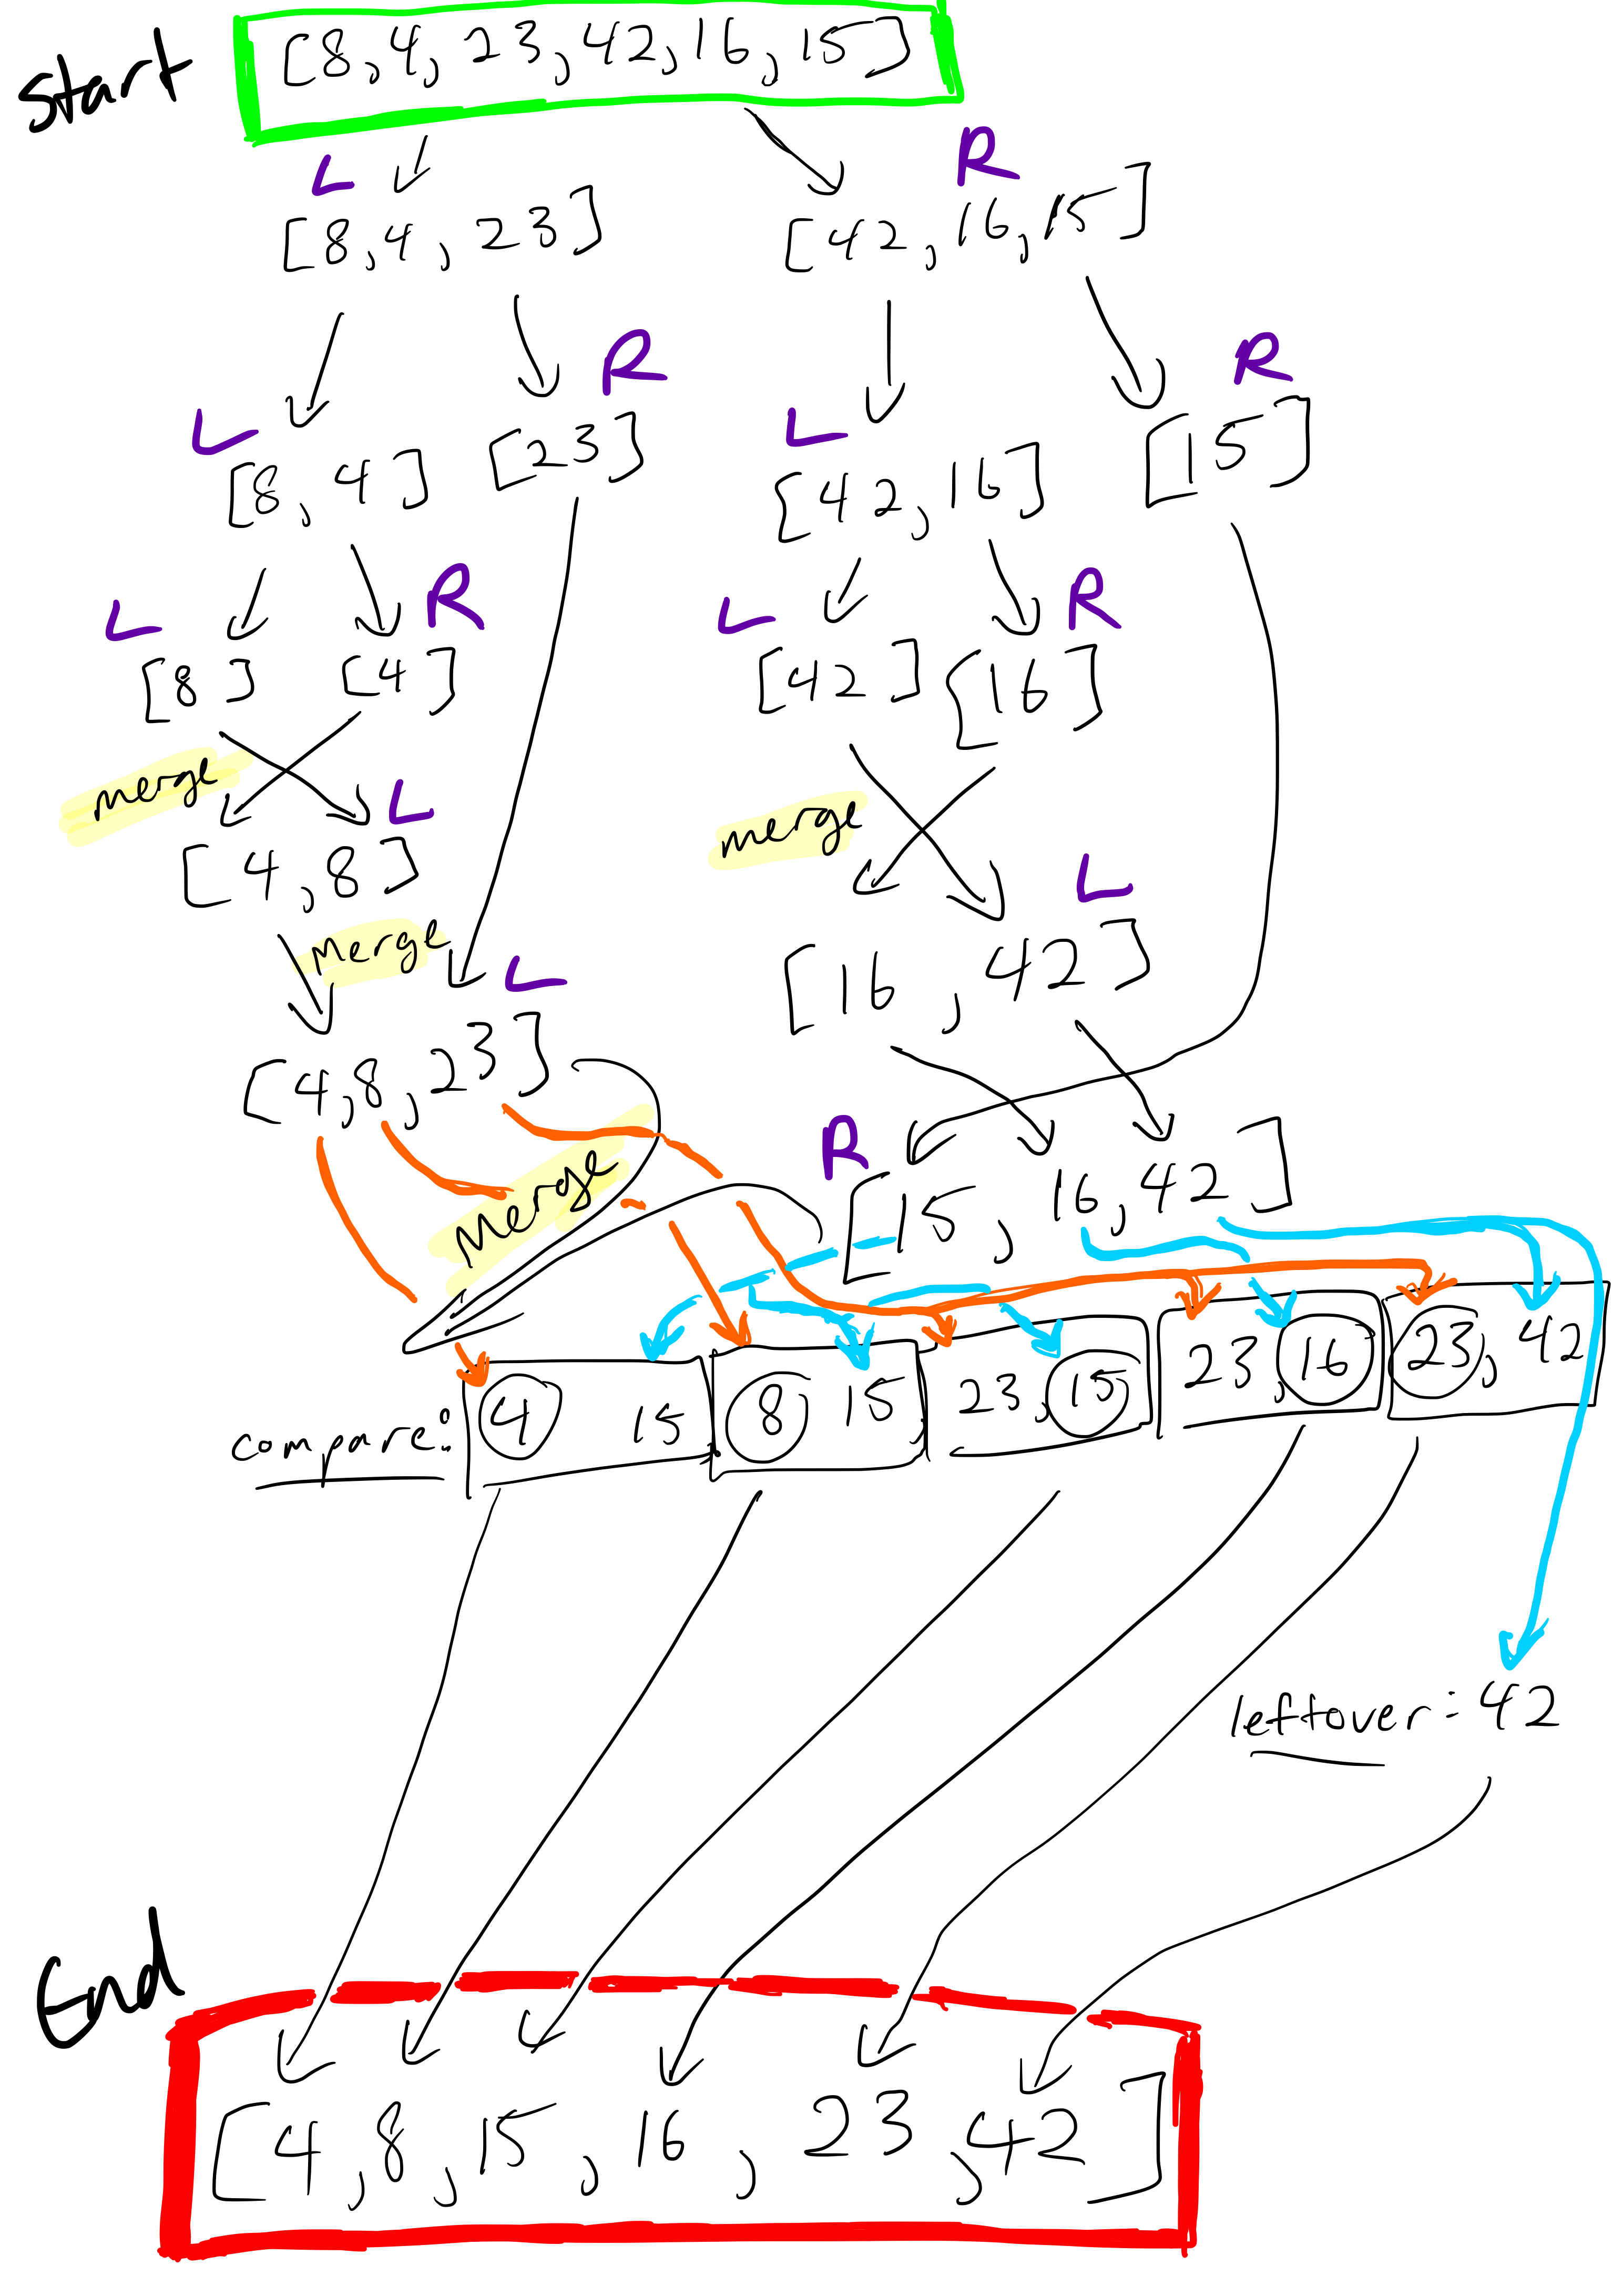 start [8,4,23,42,16,15]
L R
[8,4,23] [42,16,15]
R R
L L
[8,4] [23] [42,16] [15]
L R L R
[8] [4] [42] [16]
merge L merge
[4,8] L
merge L [16,42]
[4,8,23]
Merge R [15,16,42]
compare: 4 15 8 15, 23,15 23,16 23,42
leftover: 42
End
[4,8,15,16,23,42]